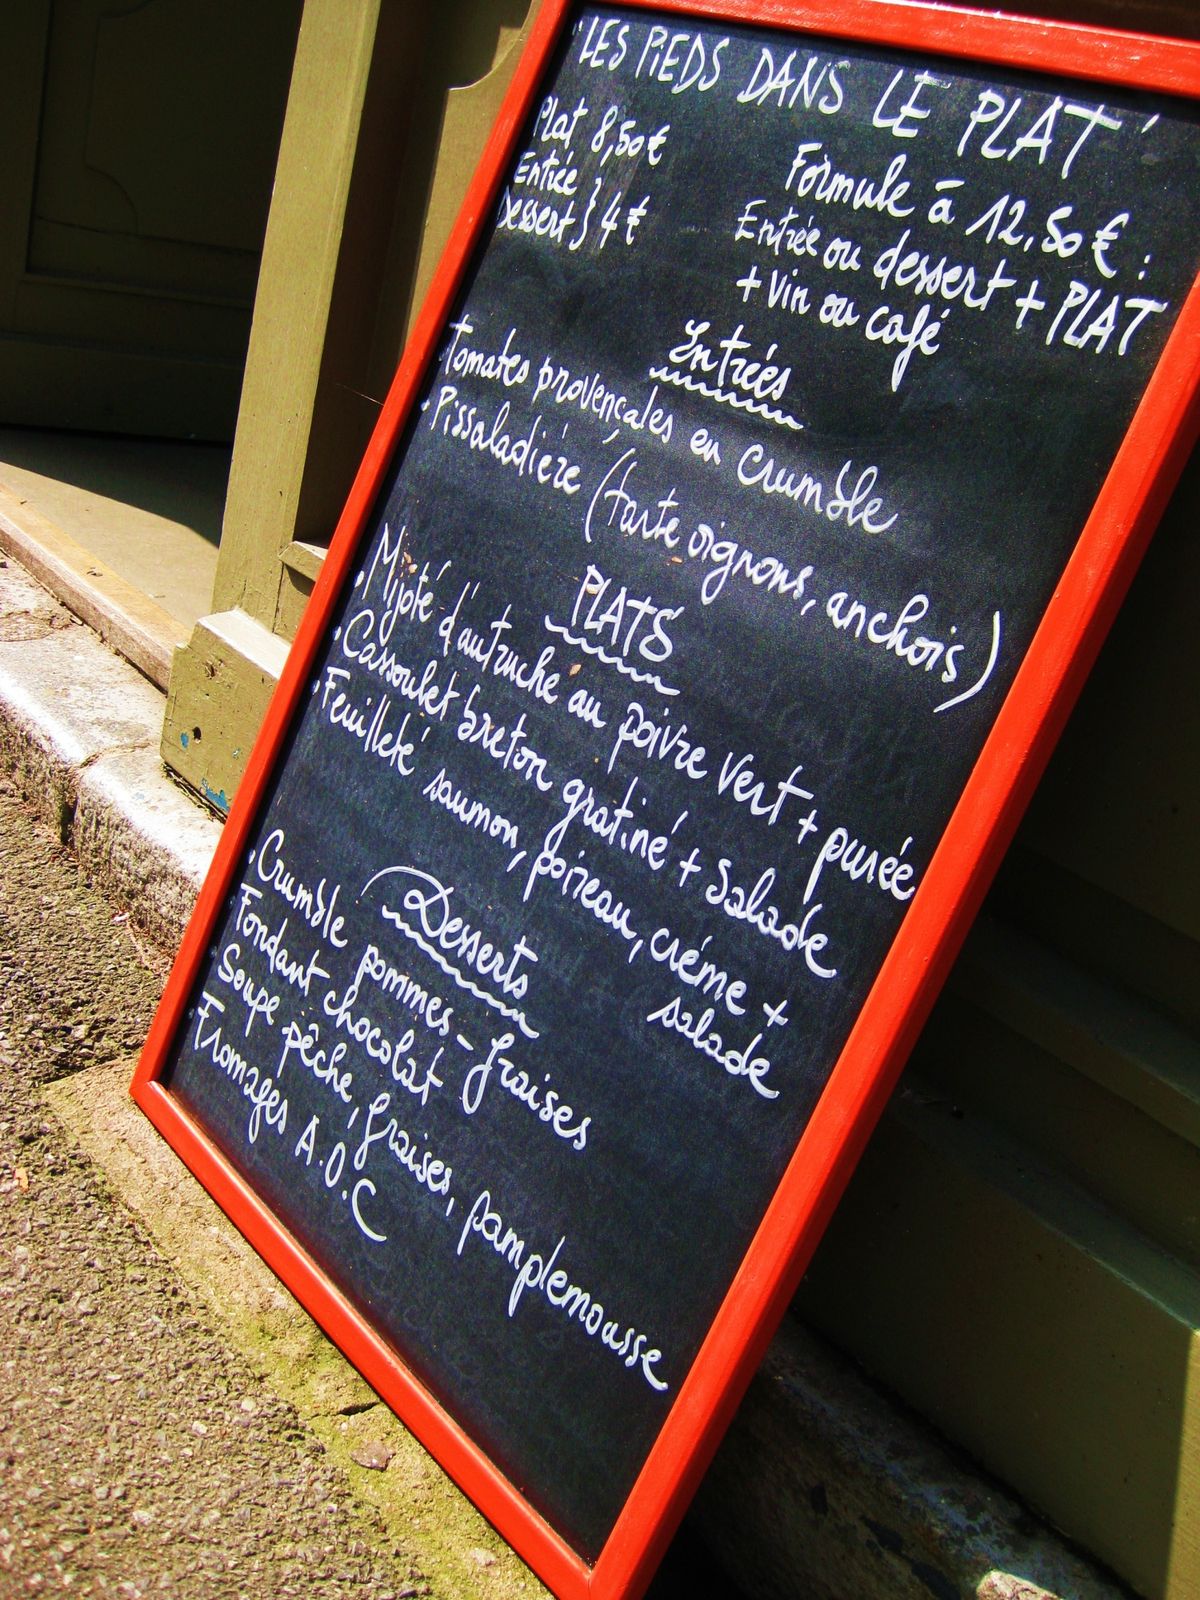 'LES PIEDS DANS LE PLAT'
Plat 8,50€
Entrée } 4€
Dessert
Formule à 12.50€ :
Entrée ou dessert + PLAT
+ vin ou café
Entrées
Tomates provençales en crumble
• Pissaladière (tarte oignons, anchois)
PLATS
• Mijoté d'autruche au poivre vert + purée
• Cassoulet breton gratiné + salade
• Feuilleté saumon, poireau, crème +
salade
Desserts
• Crumble pommes - fraises
• Fondant chocolat
• Soupe pêche, fraises, pamplemousse
• Fromages A.O.C